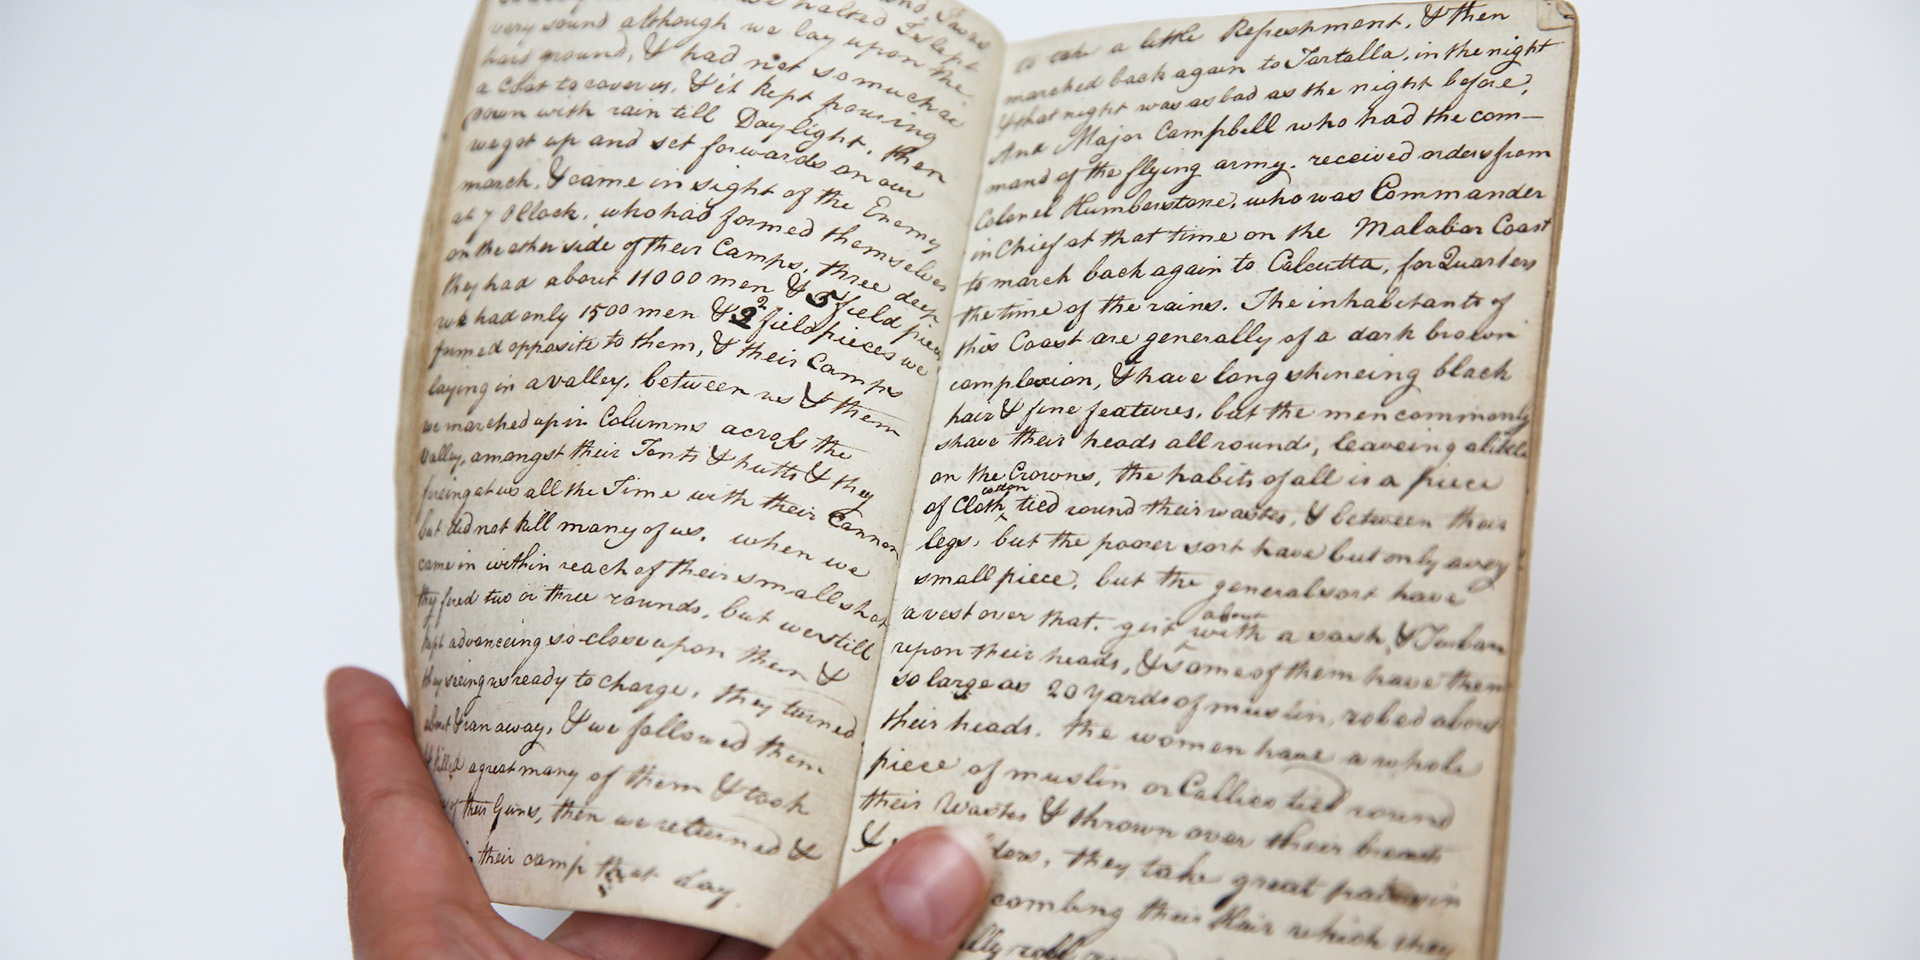 very sound although we lay upon the
hard ground, & I had not so much as
a Coat to cover us, & it kept pouring
down with rain till Daylight, then
we got up and set forwards on our
march, & came in sight of the Enemy
at 7 OClock, who had formed themselves
on the other side of their Camps, three deep
they had about 11000 men & 5 field pieces
we had only 1500 men & 2 field pieces we
formed opposite to them, & their Camps
laying in a valley, between us & them
we marched up in Columns across the
Valley, amongst their Tents & hutts & they
fireing at us all the Time with their Cannon
but did not kill many of us, when we
came in within reach of their small shot
they fired two or three rounds, but we still
kept advanceing so close upon them &
they seeing us ready to charge, they turned
about & ran away, & we followed them
& killed a great many of them & took
their Guns, then we returned &
their camp that day
to take a little Refreshment, & then
marched back again to Tartalla, in the night
& that night was as bad as the night before,
And Major Campbell who had the com-
mand of the flying army, received orders from
Colonel Humberstone, who was Commander
in Chief at that time on the Malabar Coast
to march back again to Calcutta, for Quarters
the time of the rains. The inhabitants of
this Coast are generally of a dark brown
complexion, & have long shineing black
hair & fine features, but the men commonly
shave their heads all round, leaveing a little
on the Crowns, the habits of all is a piece
of cotton Cloth tied round their wastes, & between their
legs, but the poorer sort have but only a very
small piece, but the general sort have
a vest over that, girt about with a sash, & Turban
upon their heads, & some of them have them
so large as 20 yards of muslin, robed about
their heads. the women have a whole
piece of muslin or Callico tied round
their Wastes & thrown over their breasts
& they take great pains in
combing their Hair which they